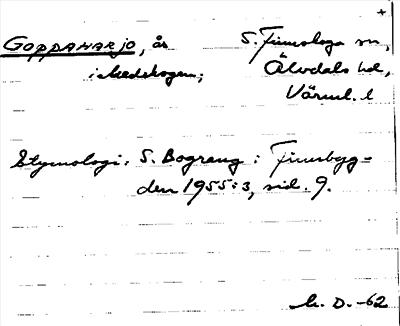 +
GOPPAHARJO, ås S. Finnskoga sn,
i Medskogen; Älvdals hd,
Värml. l
Etymologi: S. Bograng i Finnbyg=
den 1955:3, sid. 9.
M. D. -62